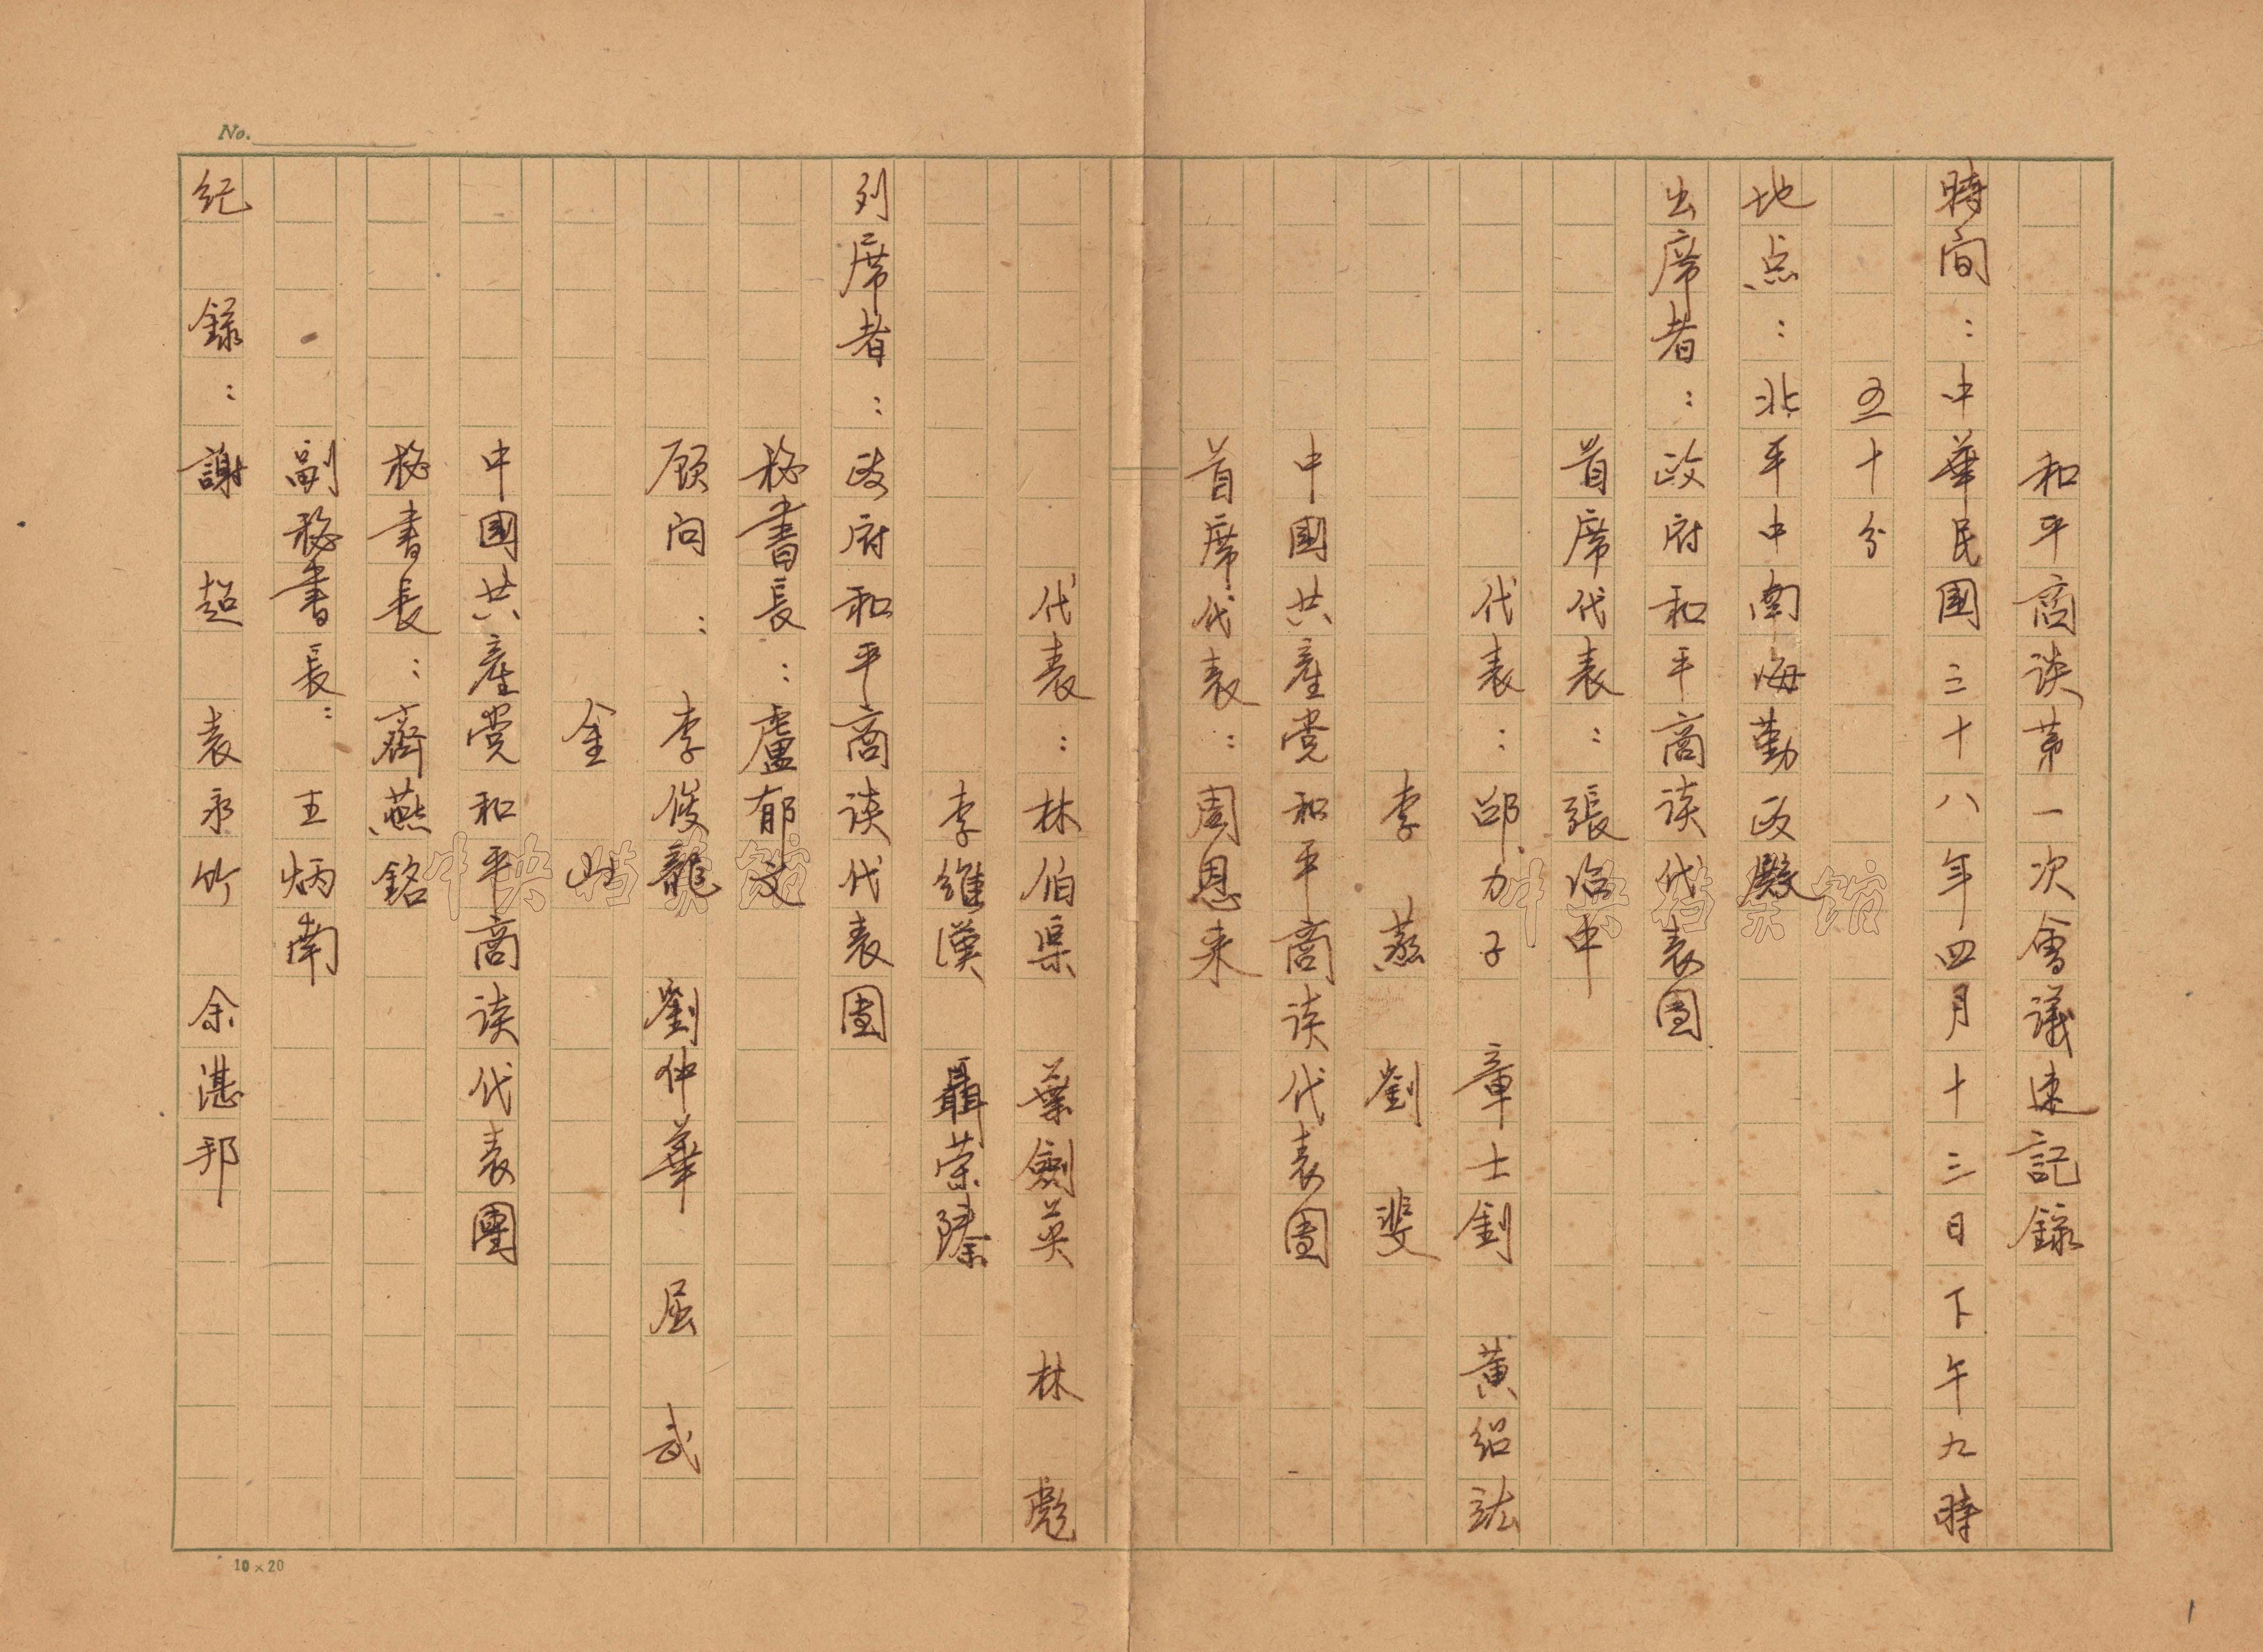 No.
和平商谈第一次會議速記錄
時间：中華民國三十八年四月十三日下午九時
五十分
地点：北平中南海勤政殿
出席者：政府和平商谈代表团
首席代表：張治中
代表：邵力子 章士釗 黄绍竑
李蒸 劉斐
中國共產党和平商谈代表团
首席代表：周恩来
代表：林伯渠 葉劍英 林彪
李維漢 聶荣臻
列席者：政府和平商谈代表團
秘書長：盧郁文
顾问：李俊龍 劉仲華 屈武
金山
中國共產党和平商谈代表團
秘書長：齊燕銘
副秘書長：王炳南
纪錄：謝超 袁永竹 余湛邦
10×20
1
中央档案馆
中央档案馆